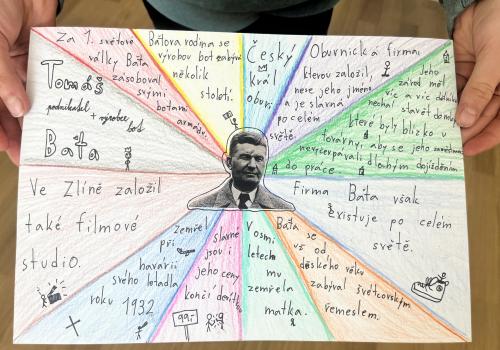 Za 1. světové
války Bata
zásoboval
svými
botami
armádu.
Baťova rodina se
výrobou bot zabývá
několik
století.
Český
král
obuvi
Obuvnická firma,
kterou založil,
nese jeho jméno
a je slavná
po celém
světě.
Jeho
závod měl
víc a víc dělníků
nechal stavět domky,
které byly blízko u
továrny, aby se jeho zaměstnanci
nevyčerpávali dlouhým dojížděním
do práce.
Tomáš
podnikatel
+ výrobce
bot
Baťa
Ve Zlíně založil
také filmové
studio.
Zemřel
při
havárii
svého letadla
roku 1932
slavné
jsou i
jeho ceny
končí devítkou
99,-
V osmi
letech
mu
zemřela
matka.
Baťa se
už od
dětského věku
zabýval ševcovským
řemeslem.
Firma Baťa však
existuje po celém
světě.